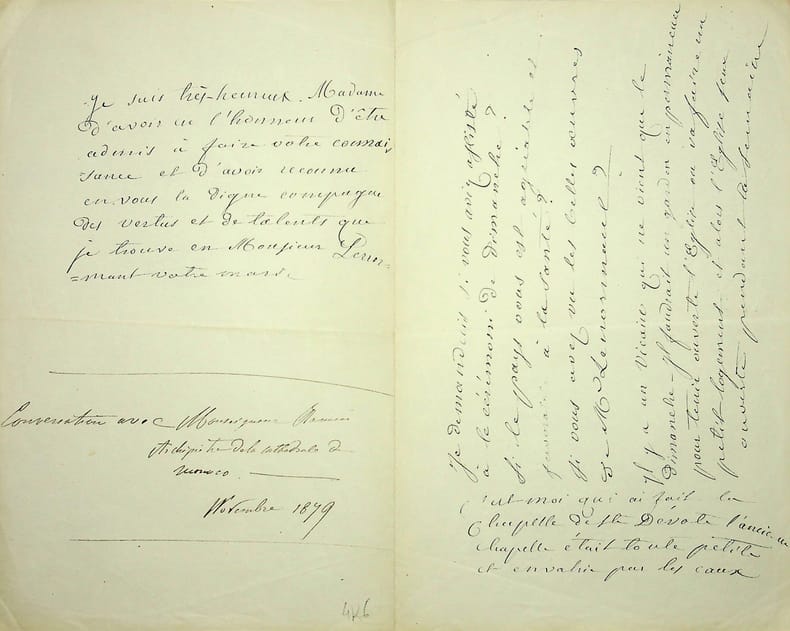 Je suis très-heureux, Madame
d'avoir eu l'honneur d'être
admis à faire votre connais
sance et d'avoir reconnu
en vous la digne compagne
des vertus et de talents que
je trouve en Monsieur Lenor=
=mant votre marie
Conversation avec Monseigneur
Archiprêtre de la cathédrale de
Monaco.
Novembre 1879
Je demandais si vous aviez assisté
à la cérémoni de dimanche?
Si le pays vous est agréable et
à la santé?
Si vous avez vu les belles œuvres
de Mr Lenormand?
Il y a un Vicaire qui ne viens que le
dimanche - Il faudrait un gardien en permanence
pour tenir ouverte l'Eglise on va faire un
petit logement et alors l'Eglise sera
ouverte pendant la semaine
c'est moi qui ai fait la
Chapelle de Ste Dévote l'ancienne
chapelle était toute petite
et envahie par les eaux